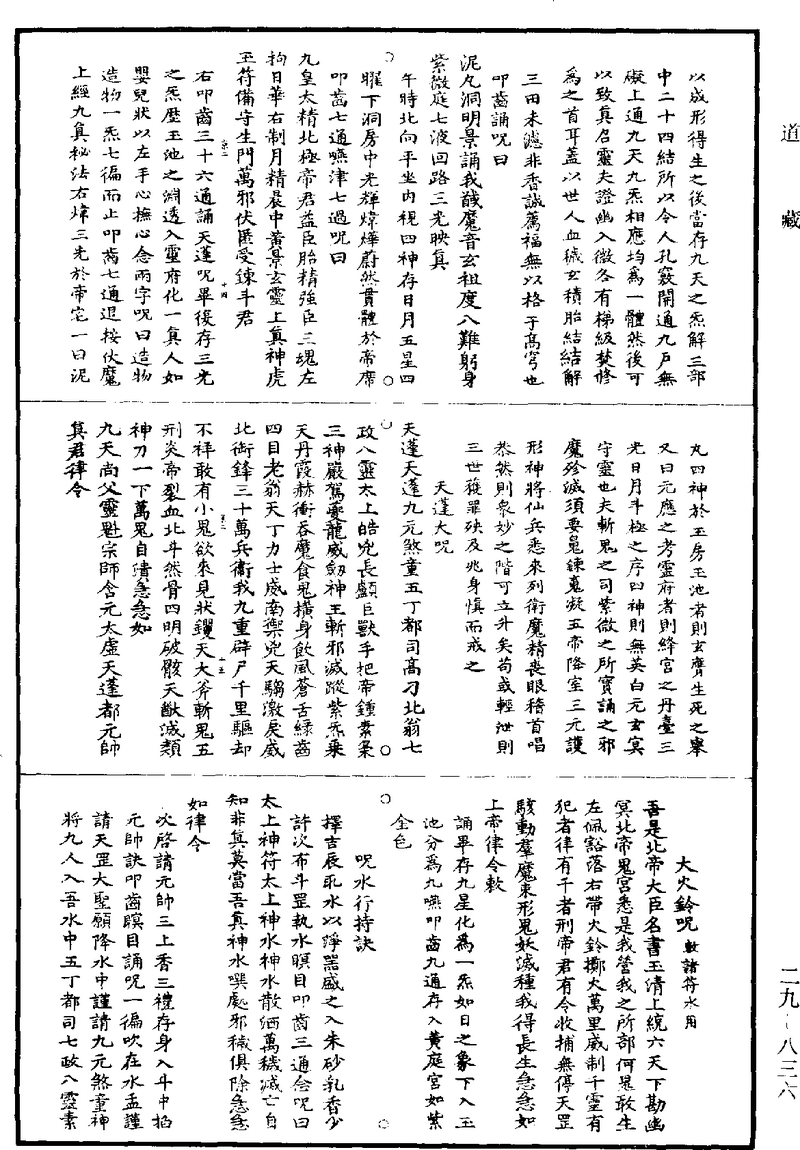 道藏
二九－八三六
以成形得生之後當存九天之炁解三部
中二十四結所以令人孔竅開通九戶無
礙上通九天九炁相應均為一體然後可
以致真召靈夫證幽入微各有梯級焚修
為之首耳蓋以世人血穢玄積胎結結解
三田未濾非香誠薦福無以格于高穹也
叩齒誦呪曰
泥丸洞明景誦我馘魔音玄祖度八難躬身
紫微庭七液回路三光映真
午時北向平坐內視四神存日月五星四
曜下洞房中光輝煒燁蔚然貫體於帝席
叩齒七通嚥津七過呪曰
九皇太精北極帝君益臣胎精強臣三魂左
拘日華右制月精晨中黃景玄靈上真神虎
玉符備守生門萬邪伏匿受鍊斗君
右叩齒三十六通誦天蓬呪畢復存三光
之炁歷玉池之淵透入靈府化一真人如
嬰兒狀以左手心撫心念兩字呪曰造物
造物一炁七徧而止叩齒七通退按伏魔
上經九真秘法右煒三光於帝宅一曰泥
丸四神於玉房玉池者則玄膺生死之舉
又曰元應之考靈府者則絳宮之丹臺三
光日月斗極之序四神則無英白元玄冥
守靈也夫斬鬼之司紫微之所寶誦之邪
魔殄滅須要鬼鍊鬼凝五帝降室三元護
形神將仙兵悉來列衛魔精喪眼稽首唱
恭然則眾妙之階可立升矣苟或輕泄則
三世獲罪殃及兆身慎而戒之
天蓬大呪
天蓬天蓬九元煞童五丁都司高刁北翁七
政八靈太上皓兇長顱巨獸手把帝鍾素梟
三神嚴駕夔龍威劍神王斬邪滅蹤紫炁乘
天丹霞赫衝吞魔食鬼橫身飲風蒼舌綠齒
四目老翁天丁力士威南禦兇天騶激戾威
北銜鋒三十萬兵衛我九重辟尸千里驅却
不祥敢有小鬼欲來見狀钁天大斧斬鬼五
刑炎帝裂血北斗然骨四明破骸天猷滅類
神刀一下萬鬼自潰急急如
九天尚父靈魁宗師含元太虛天蓬都元帥
真君律令
大火鈴呪勅諸符水用
吾是北帝大臣名書玉清上統六天下勘幽
冥北帝鬼宮悉是我營我之所部何鬼敢生
左佩豁落右帶火鈴擲火萬里威制千靈有
犯者律有干者刑帝君有令收捕無停天罡
駭動羣魔束形鬼妖滅種我得長生急急如
上帝律令敕
誦畢存九星化為一炁如日之象下入玉
池分為九嚥叩齒九通存入黃庭宮如紫
金色
呪水行持訣
擇吉辰取水以淨器盛之入朱砂乳香少
許次布斗罡執水瞑目叩齒三通念呪曰
太上神符太上神水神水散洒萬穢滅亡自
知非真莫當吾真神水噀處邪穢俱除急急
如律令
次啓請元帥三上香三禮存身入斗中掐
元帥訣叩齒瞑目誦呪一徧吹在水盂謹
請天罡大聖願降水中謹請九元煞童神
將九人入吾水中五丁都司七政八靈素